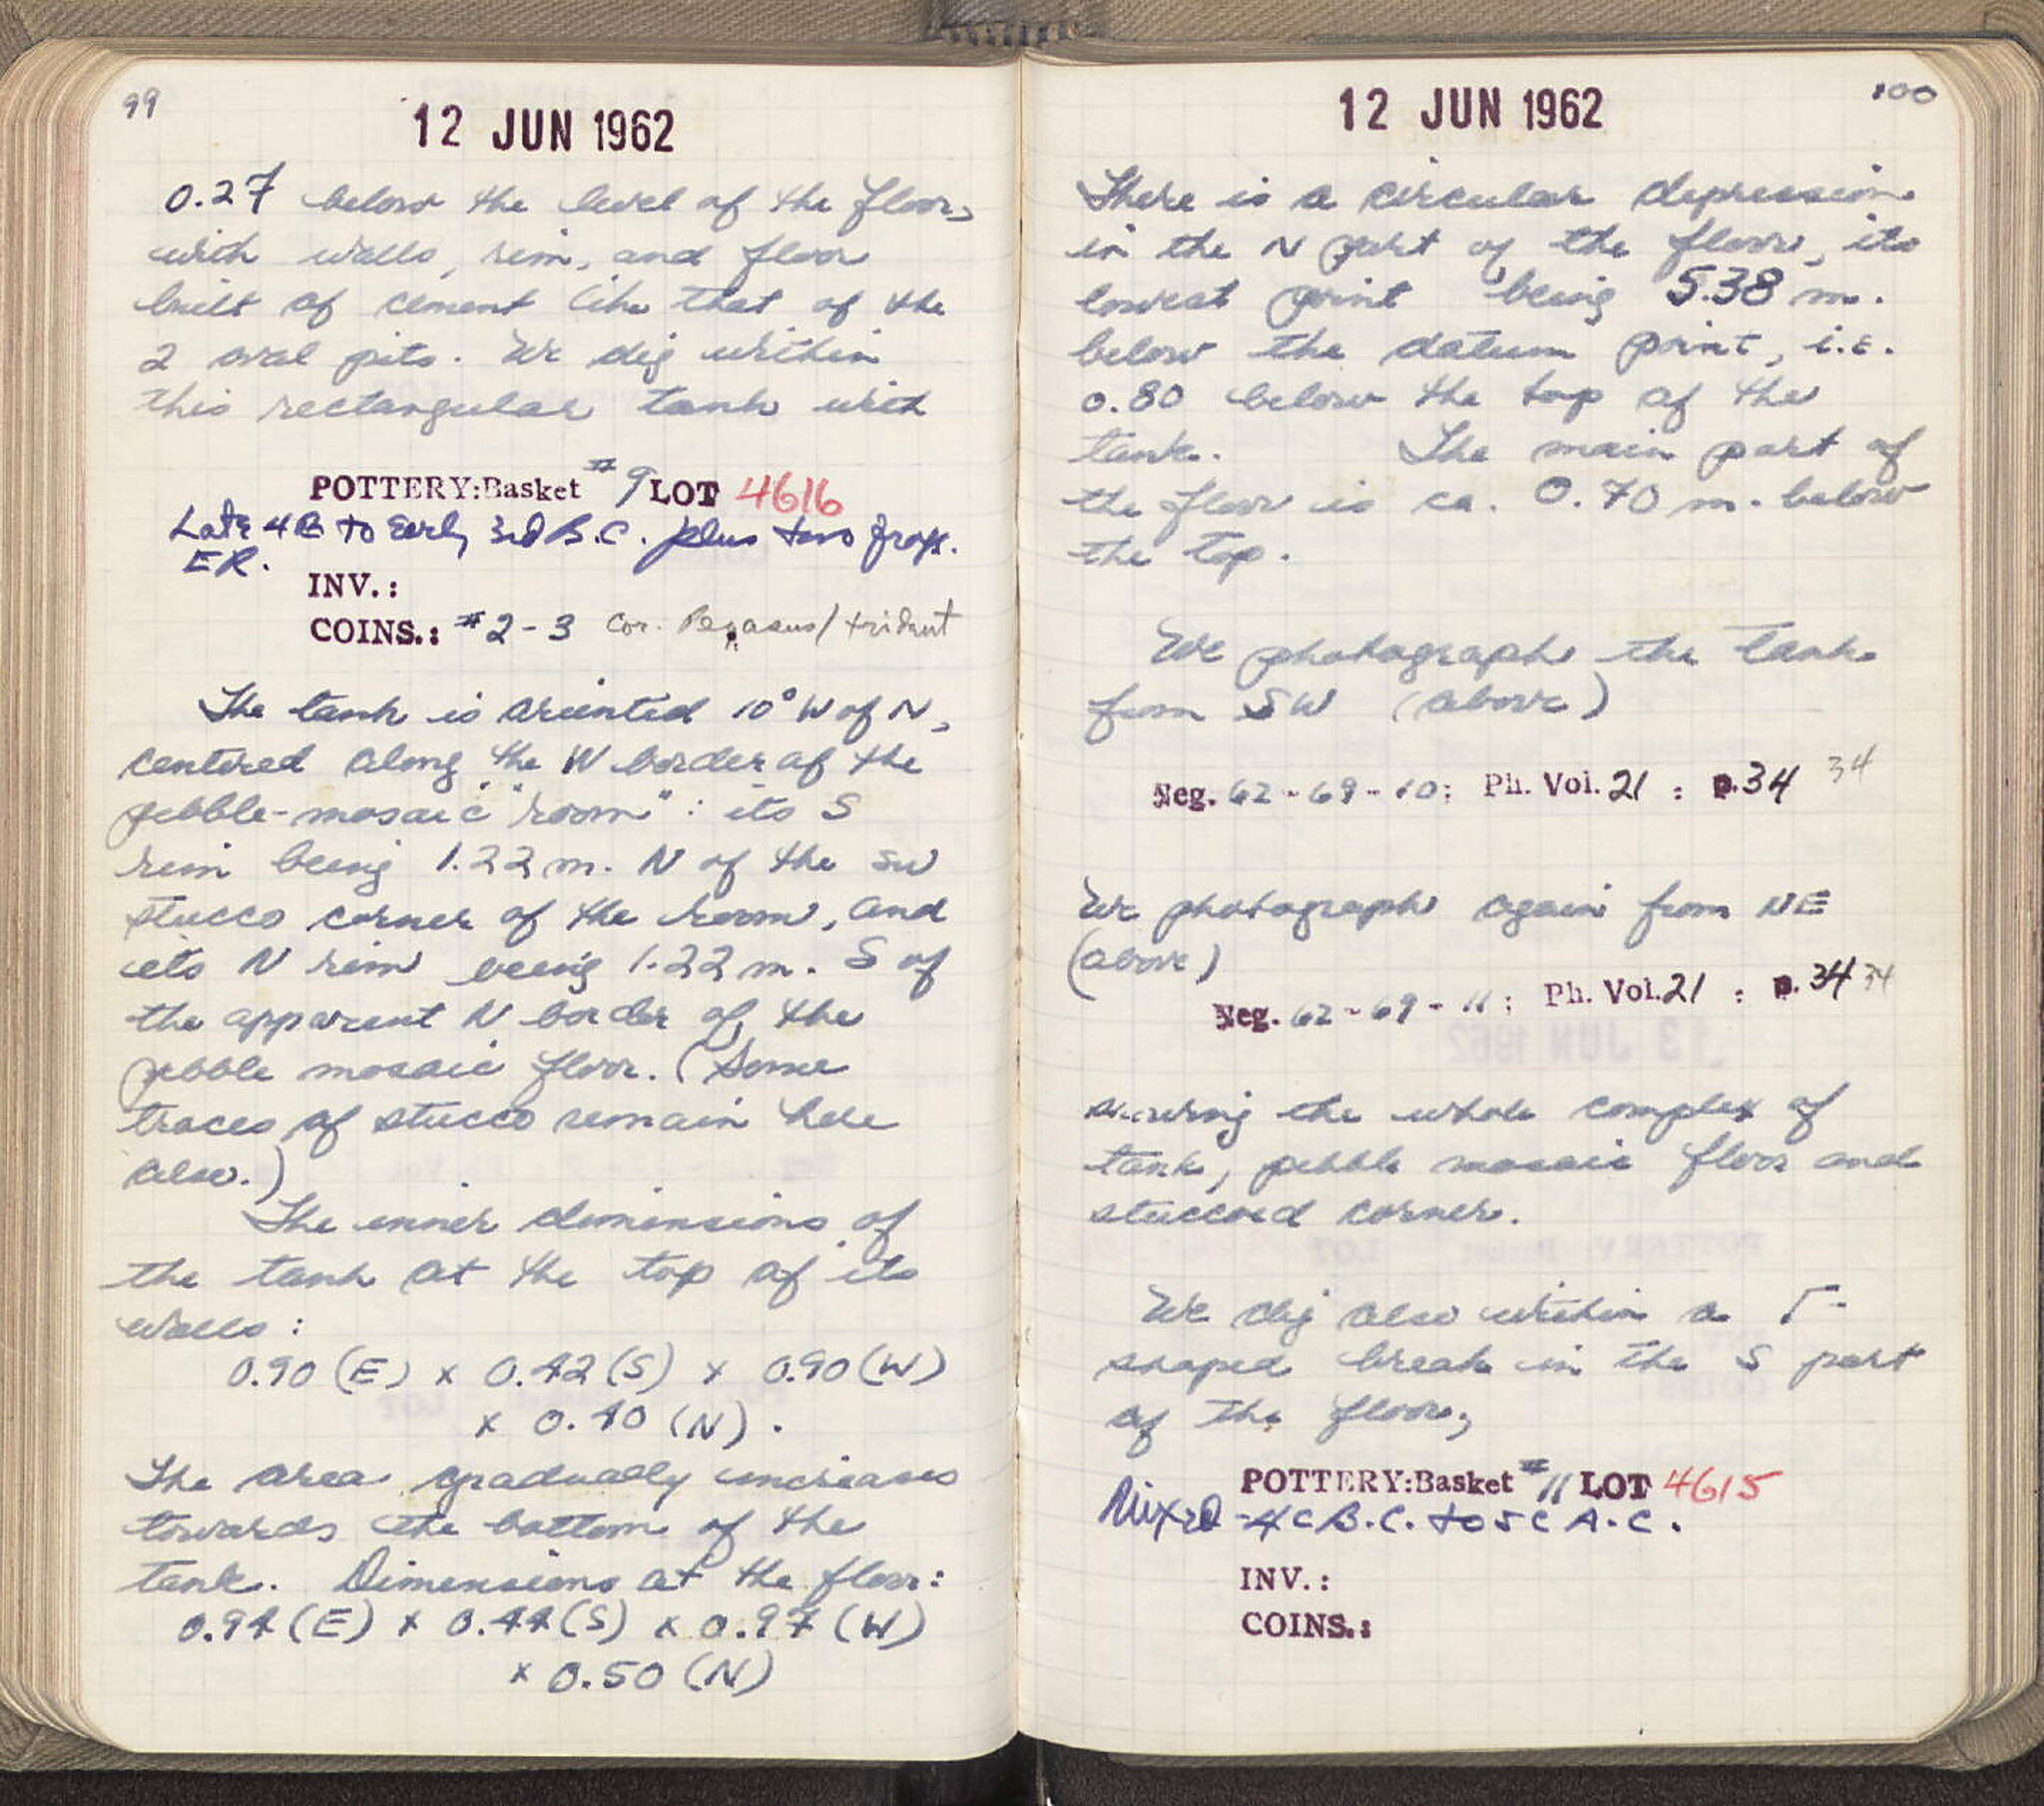 99
12 JUN 1962
0.27 below the level of the floor,
with walls, rim, and floor
built of cement like that of the
2 oval pits. We dig within
this rectangular tank with
POTTERY:Basket #9 LOT 4616
Late 4C to Early 3rd B.C. plus two frags.
ER.
INV.:
COINS.: #2-3 Cor. Pegasus/trident
The tank is oriented 10° W of N,
centered along the W border of the
pebble-mosaic "room": its S
rim being 1.22 m. N of the SW
stucco corner of the room, and
its N rim being 1.22 m. S of
the apparent N border of the
pebble mosaic floor. (Some
traces of stucco remain here
also.)
The inner dimensions of
the tank at the top of its
walls:
0.90 (E) x 0.42 (S) x 0.90 (W)
x 0.40 (N).
The area gradually increases
towards the bottom of the
tank. Dimensions at the floor:
0.94 (E) x 0.44 (S) x 0.97 (W)
x 0.50 (N)
100
12 JUN 1962
There is a circular depression
in the N part of the floor, its
lowest point being 5.38 m.
below the datum point, i.e.
0.80 below the top of the
tank. The main part of
the floor is ca. 0.70 m. below
the top.
We photograph the tank
from SW (above)
Neg. 62-69-10; Ph. Vol. 21 : p. 34 34
We photograph again from NE
(above)
Neg. 62-69-11; Ph. Vol. 21 : p. 34 34
the whole complex of
tank, pebble mosaic floor and
stuccoed corner.
We dig also within a Γ-
shaped break in the S part
of the floor,
POTTERY:Basket #11 LOT 4615
Mixed - 4C B.C. to 5C A.C.
INV.:
COINS.: